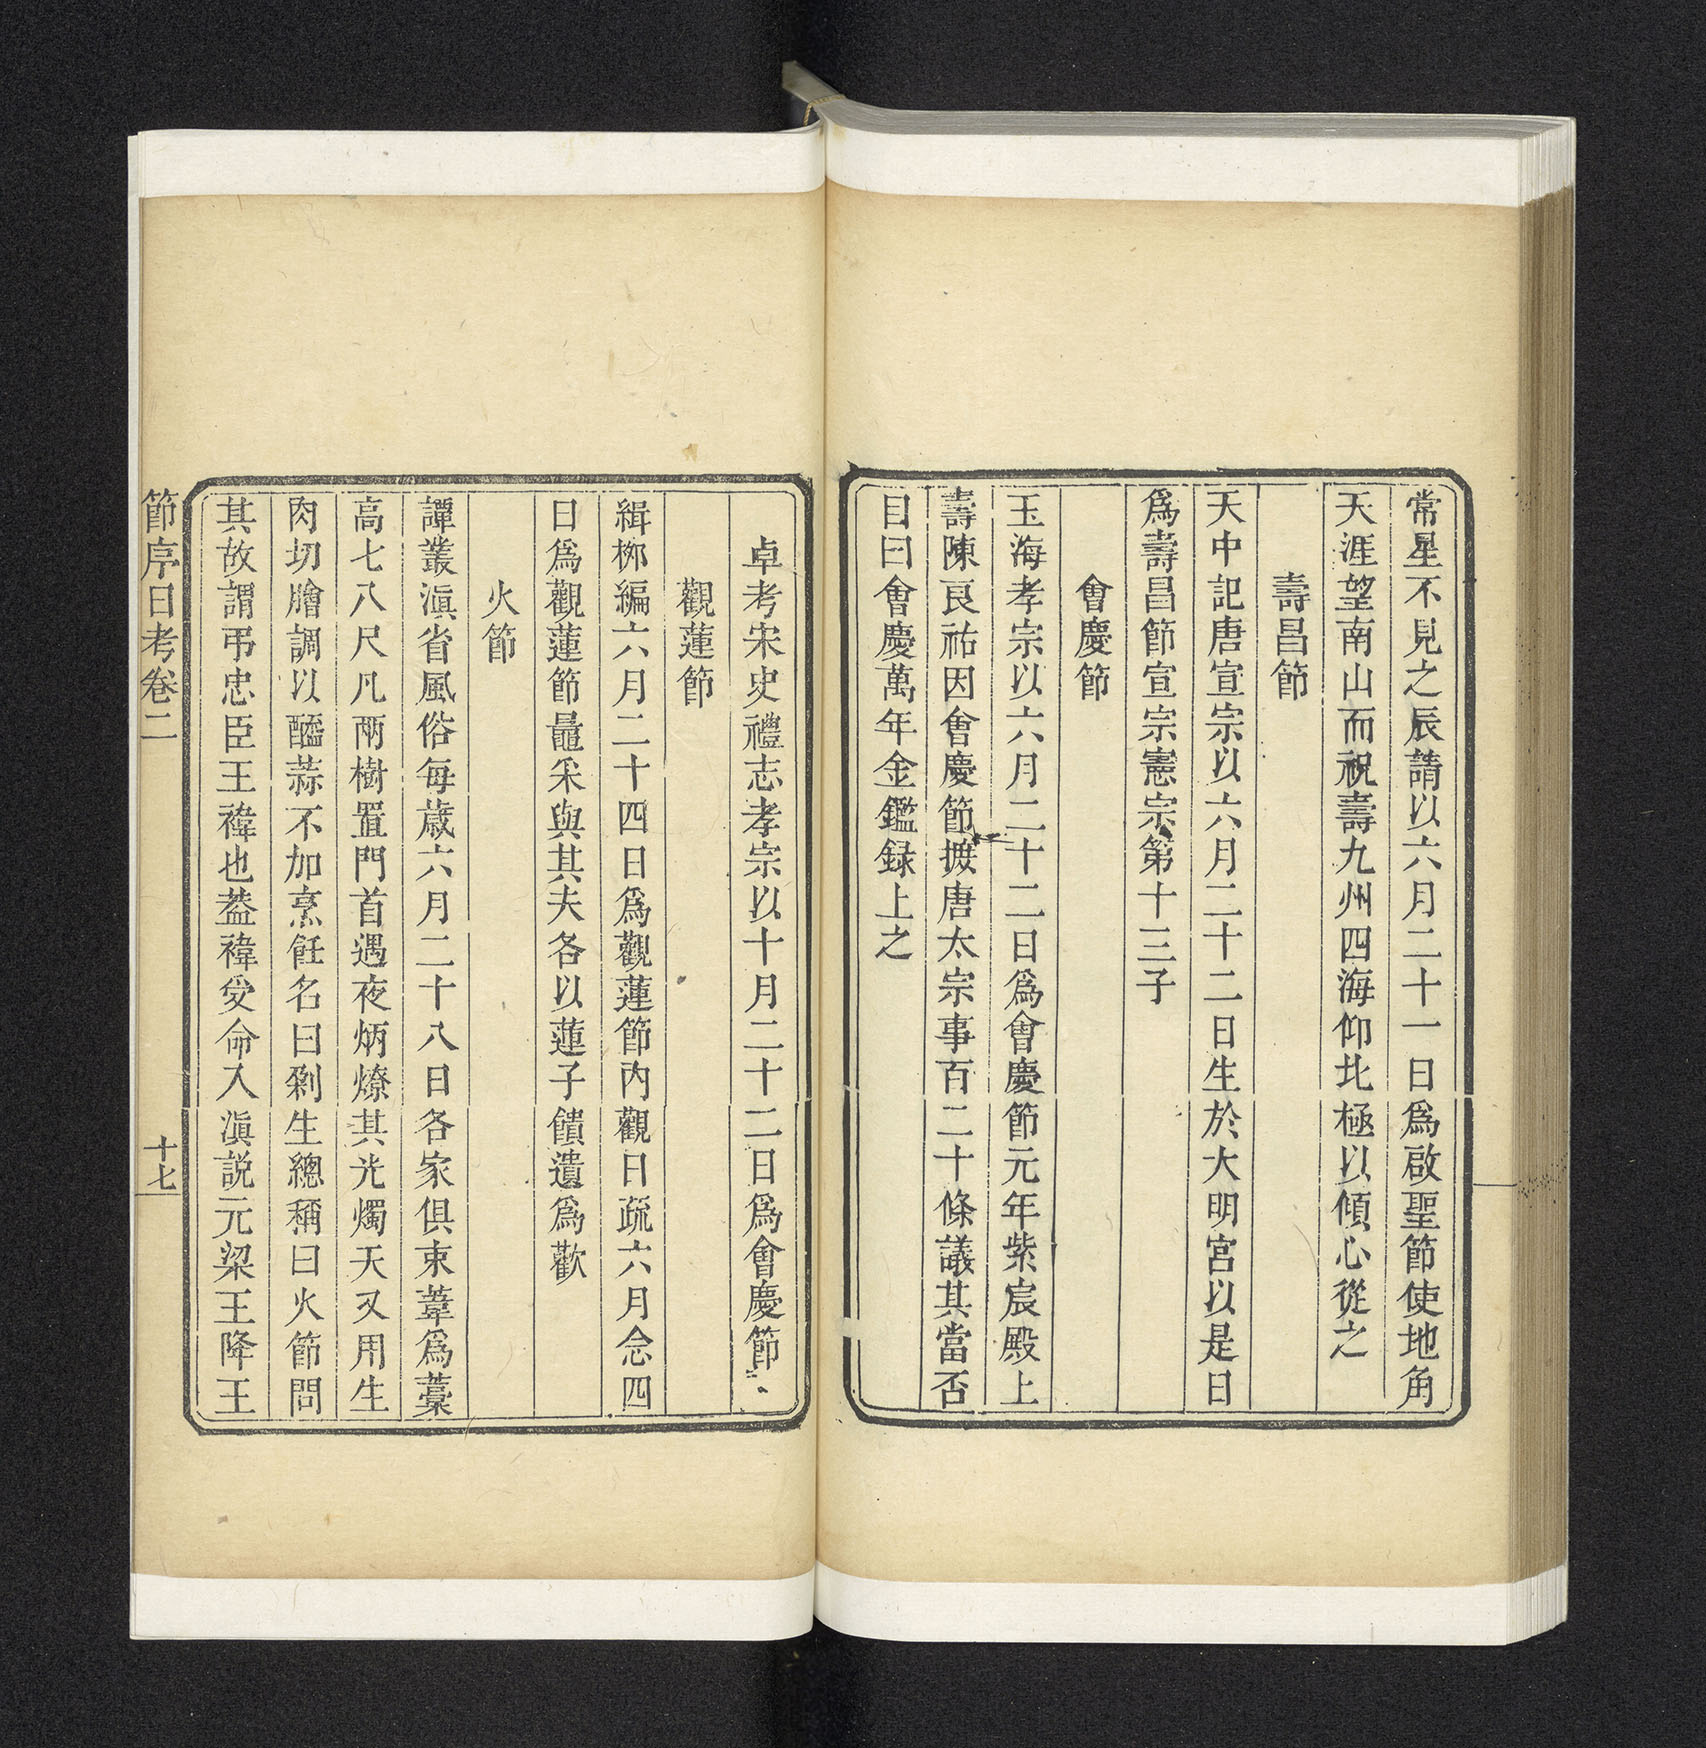 常星不見之辰請以六月二十一日爲啟聖節使地角
天涯望南山而祝壽九州四海仰北極以傾心從之
壽昌節
天中記唐宣宗以六月二十二日生於大明宮以是日
爲壽昌節宣宗憲宗第十三子
會慶節
玉海孝宗以六月二十二日爲會慶節元年紫宸殿上
壽陳良祐因會慶節摭唐太宗事百二十條議其當否
目曰會慶萬年金鑑録上之
卓考宋史禮志孝宗以十月二十二日爲會慶節
觀蓮節
緝桺編六月二十四日爲觀蓮節内觀日疏六月念四
日爲觀蓮節鼂采與其夫各以蓮子饋遺爲歡
火節
譚叢滇省風俗每歳六月二十八日各家俱束葦爲藁
高七八尺凡兩樹置門首遇夜炳燎其光燭天又用生
肉切膾調以醯蒜不加烹飪名曰剁生總稱曰火節問
其故謂弔忠臣王禕也葢禕受命入滇説元梁王降王
節序日考卷二
十七